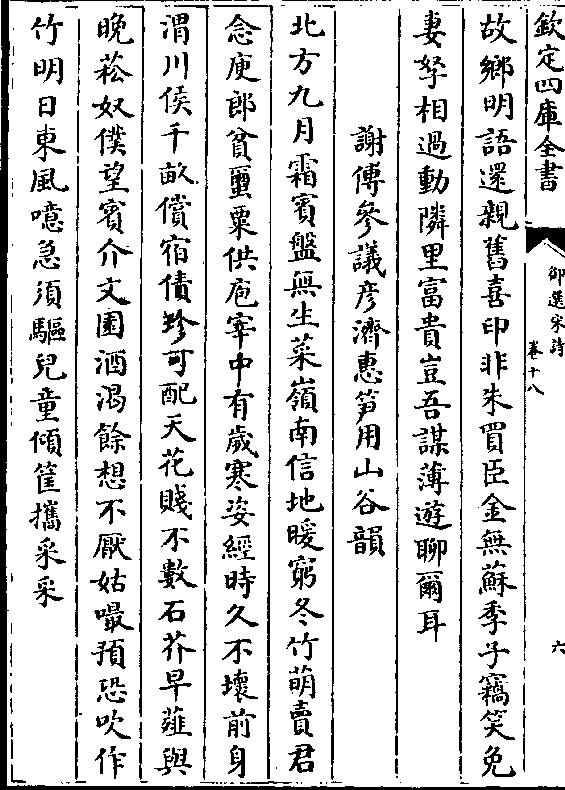 欽定四庫全書
御選宋詩
卷十八
六
故鄉明語還親舊喜印非朱買臣金無蘇季子竊笑免
妻孥相過動隣里富貴豈吾謀薄遊聊爾耳
謝傅參議彦濟惠笋用山谷韻
北方九月霜賓盤無生菜嶺南信地暖窮冬竹萌賣君
念庾郎貧罌粟供庖宰中有歲寒姿經時久不壞前身
渭川侯千畝償宿債珍可配天花賤不數石芥早薤與
晚菘奴僕望賓介文園酒渴餘想不厭姑嘬預恐吹作
竹明日東風噫急須驅兒童傾筐攜采采